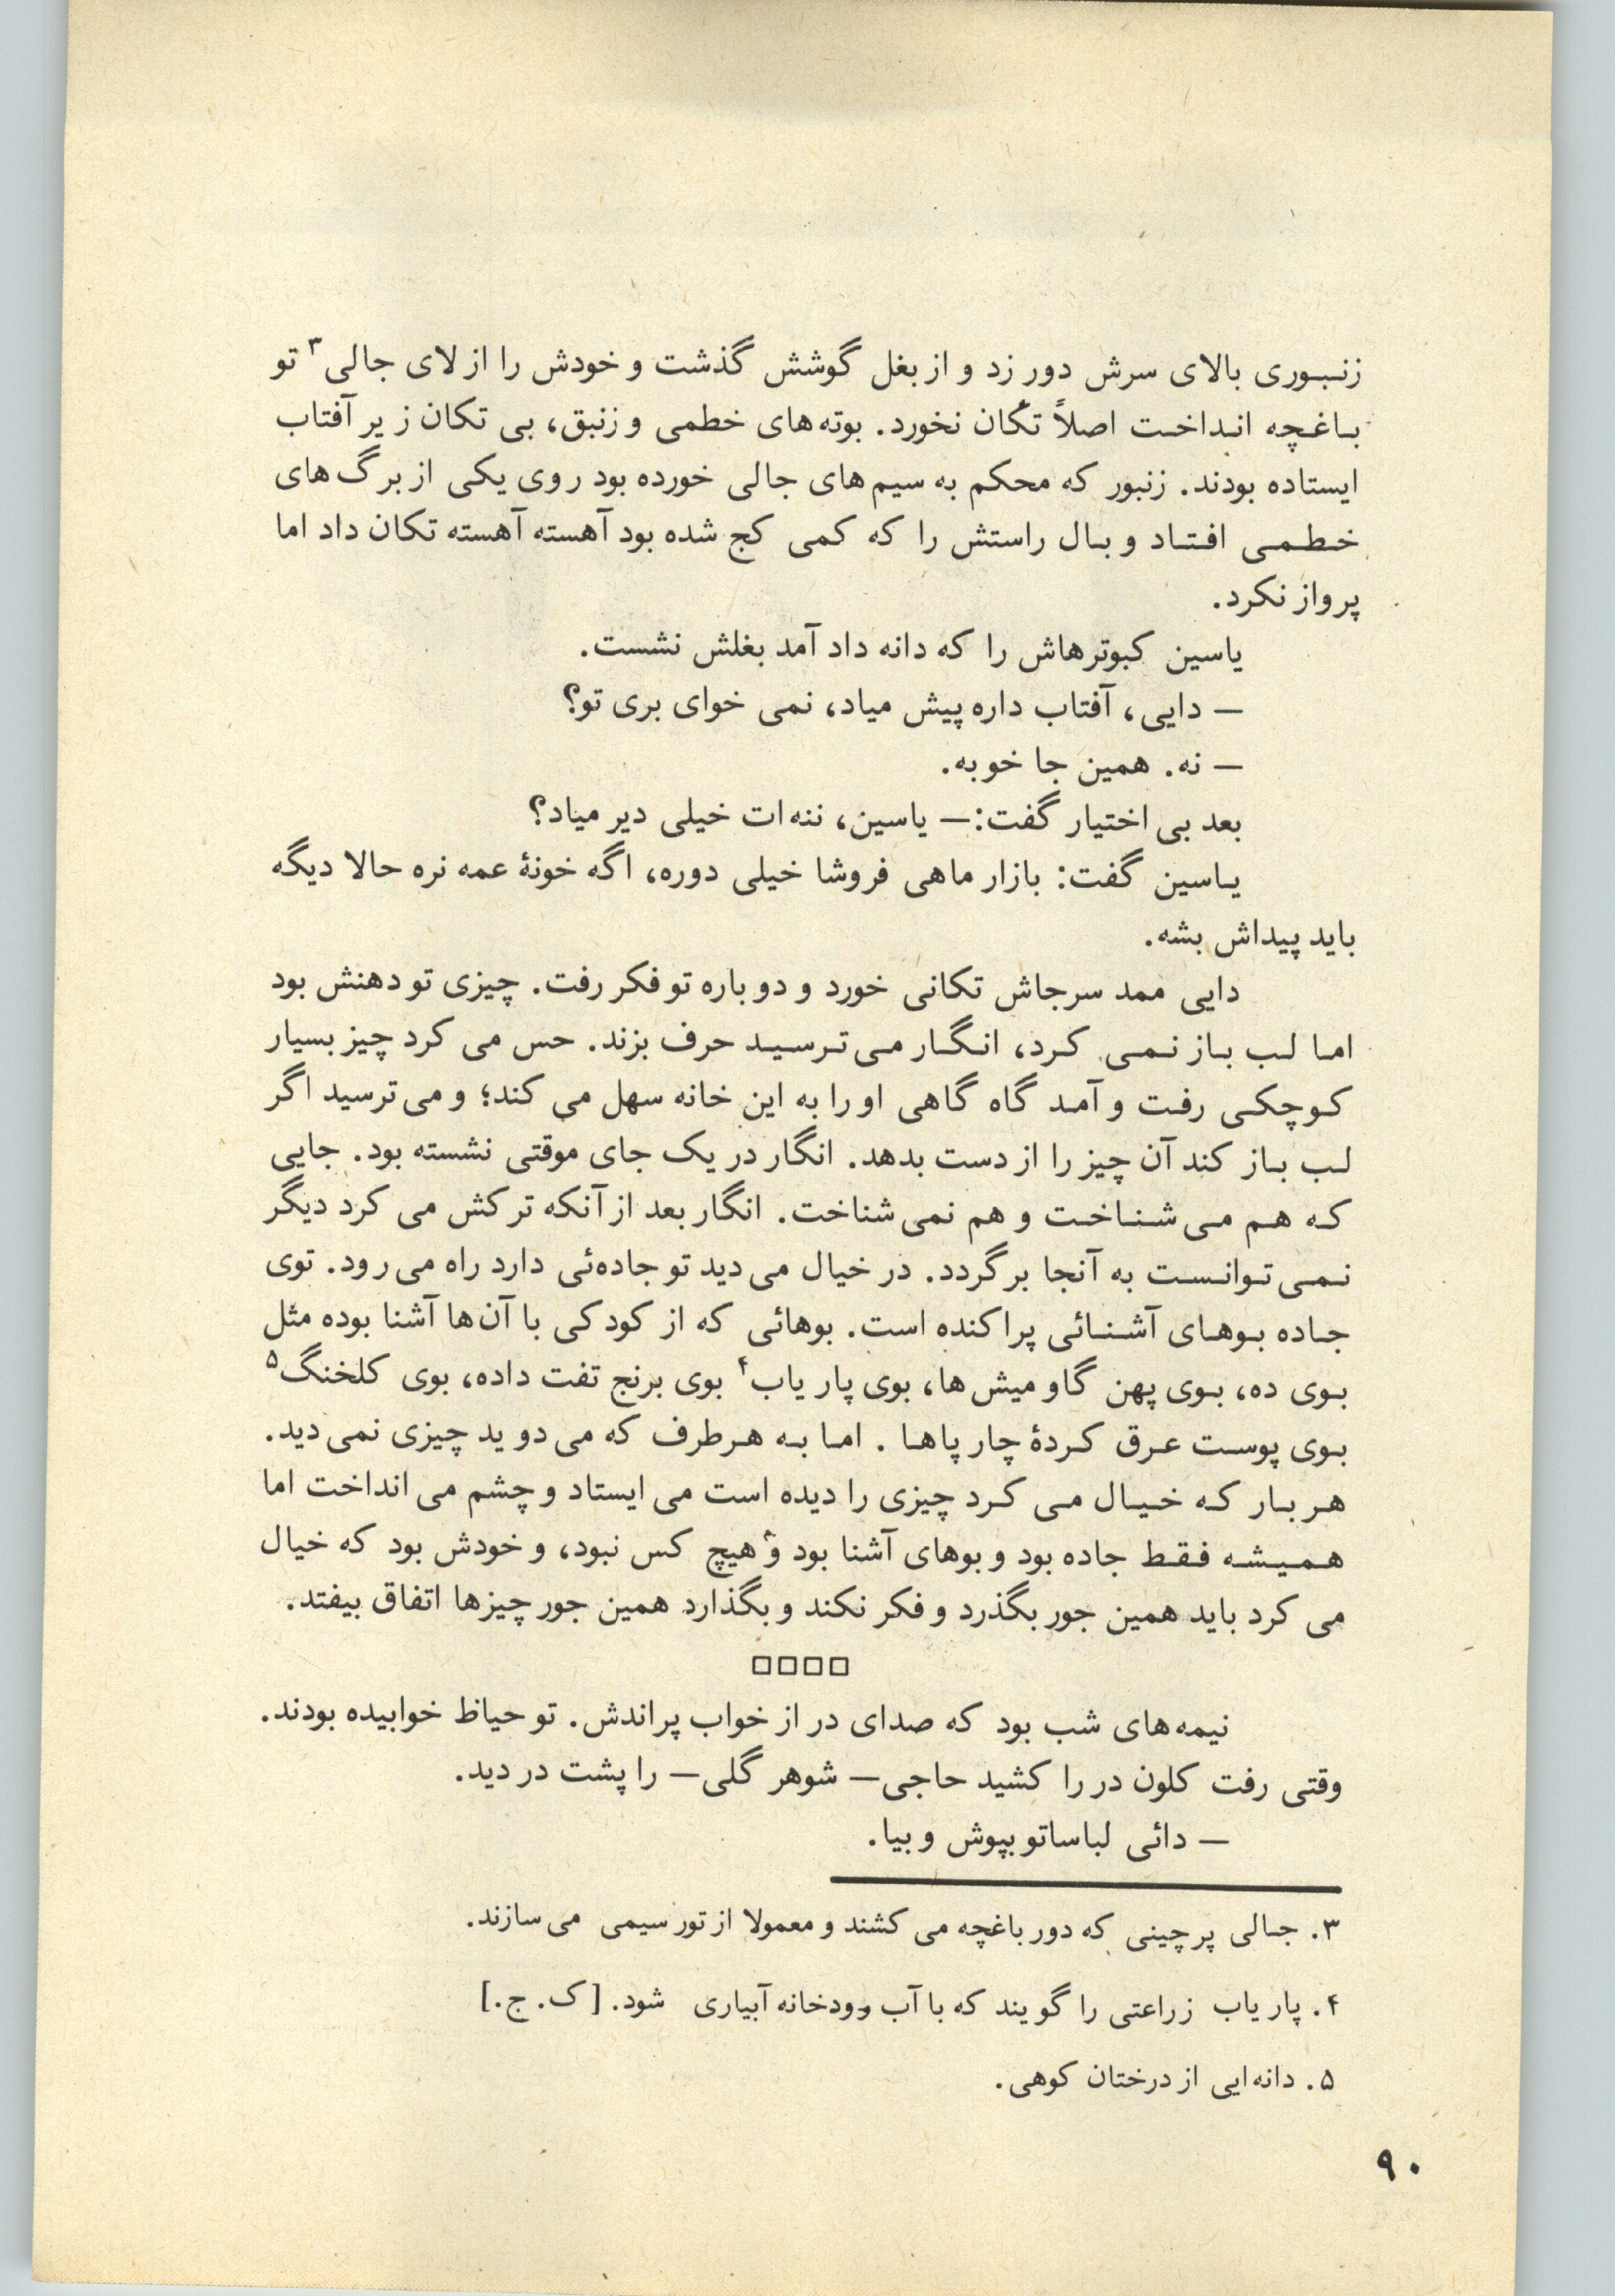 زنبوری بالای سرش دور زد و از بغل گوشش گذشت و خودش را از لای جالی۳ تو
باغچه انداخت اصلاً تکان نخورد. بوته‌های خطمی و زنبق، بی تکان زیر آفتاب
ایستاده بودند. زنبور که محکم به سیم‌های جالی خورده بود روی یکی از برگ‌های
خطمی افتاد و بال راستش را که کمی کج شده بود آهسته آهسته تکان داد اما
پرواز نکرد.
یاسین کبوترهاش را که دانه داد آمد بغلش نشست.
— دایی، آفتاب داره پیش میاد، نمی خوای بری تو؟
— نه. همین جا خوبه.
بعد بی اختیار گفت:— یاسین، ننه‌ات خیلی دیر میاد؟
یاسین گفت: بازار ماهی فروشا خیلی دوره، اگه خونهٔ عمه نره حالا دیگه
باید پیداش بشه.
دایی ممد سرجاش تکانی خورد و دوباره تو فکر رفت. چیزی تو دهنش بود
اما لب باز نمی کرد، انگار می‌ترسید حرف بزند. حس می کرد چیز بسیار
کوچکی رفت و آمد گاه گاهی او را به این خانه سهل می کند؛ و می‌ترسید اگر
لب باز کند آن چیز را از دست بدهد. انگار در یک جای موقتی نشسته بود. جایی
که هم می‌شناخت و هم نمی‌شناخت. انگار بعد از آنکه ترکش می کرد دیگر
نمی‌توانست به آنجا برگردد. در خیال می‌دید تو جاده‌ئی دارد راه می‌رود. توی
جاده بوهای آشنائی پراکنده است. بوهائی که از کودکی با آن‌ها آشنا بوده مثل
بوی ده، بوی پهن گاومیش‌ها، بوی پاریاب۴ بوی برنج تفت داده، بوی کلخنگ۵
بوی پوست عرق کردهٔ چارپاها . اما به هر طرف که می‌دوید چیزی نمی‌دید.
هر بار که خیال می کرد چیزی را دیده است می ایستاد و چشم می انداخت اما
همیشه فقط جاده بود و بوهای آشنا بود و هیچ کس نبود، و خودش بود که خیال
می کرد باید همین جور بگذرد و فکر نکند و بگذارد همین جور چیزها اتفاق بیفتد.
□□□□
نیمه‌های شب بود که صدای در از خواب پراندش. تو حیاط خوابیده بودند.
وقتی رفت کلون در را کشید حاجی— شوهر گلی— را پشت در دید.
— دائی لباساتو بپوش و بیا.
۳. جالی پرچینی که دور باغچه می کشند و معمولا از تور سیمی می‌سازند.
۴. پاریاب زراعتی را گویند که با آب رودخانه آبیاری شود. [ک. ج.]
۵. دانه‌ایی از درختان کوهی.
۹۰